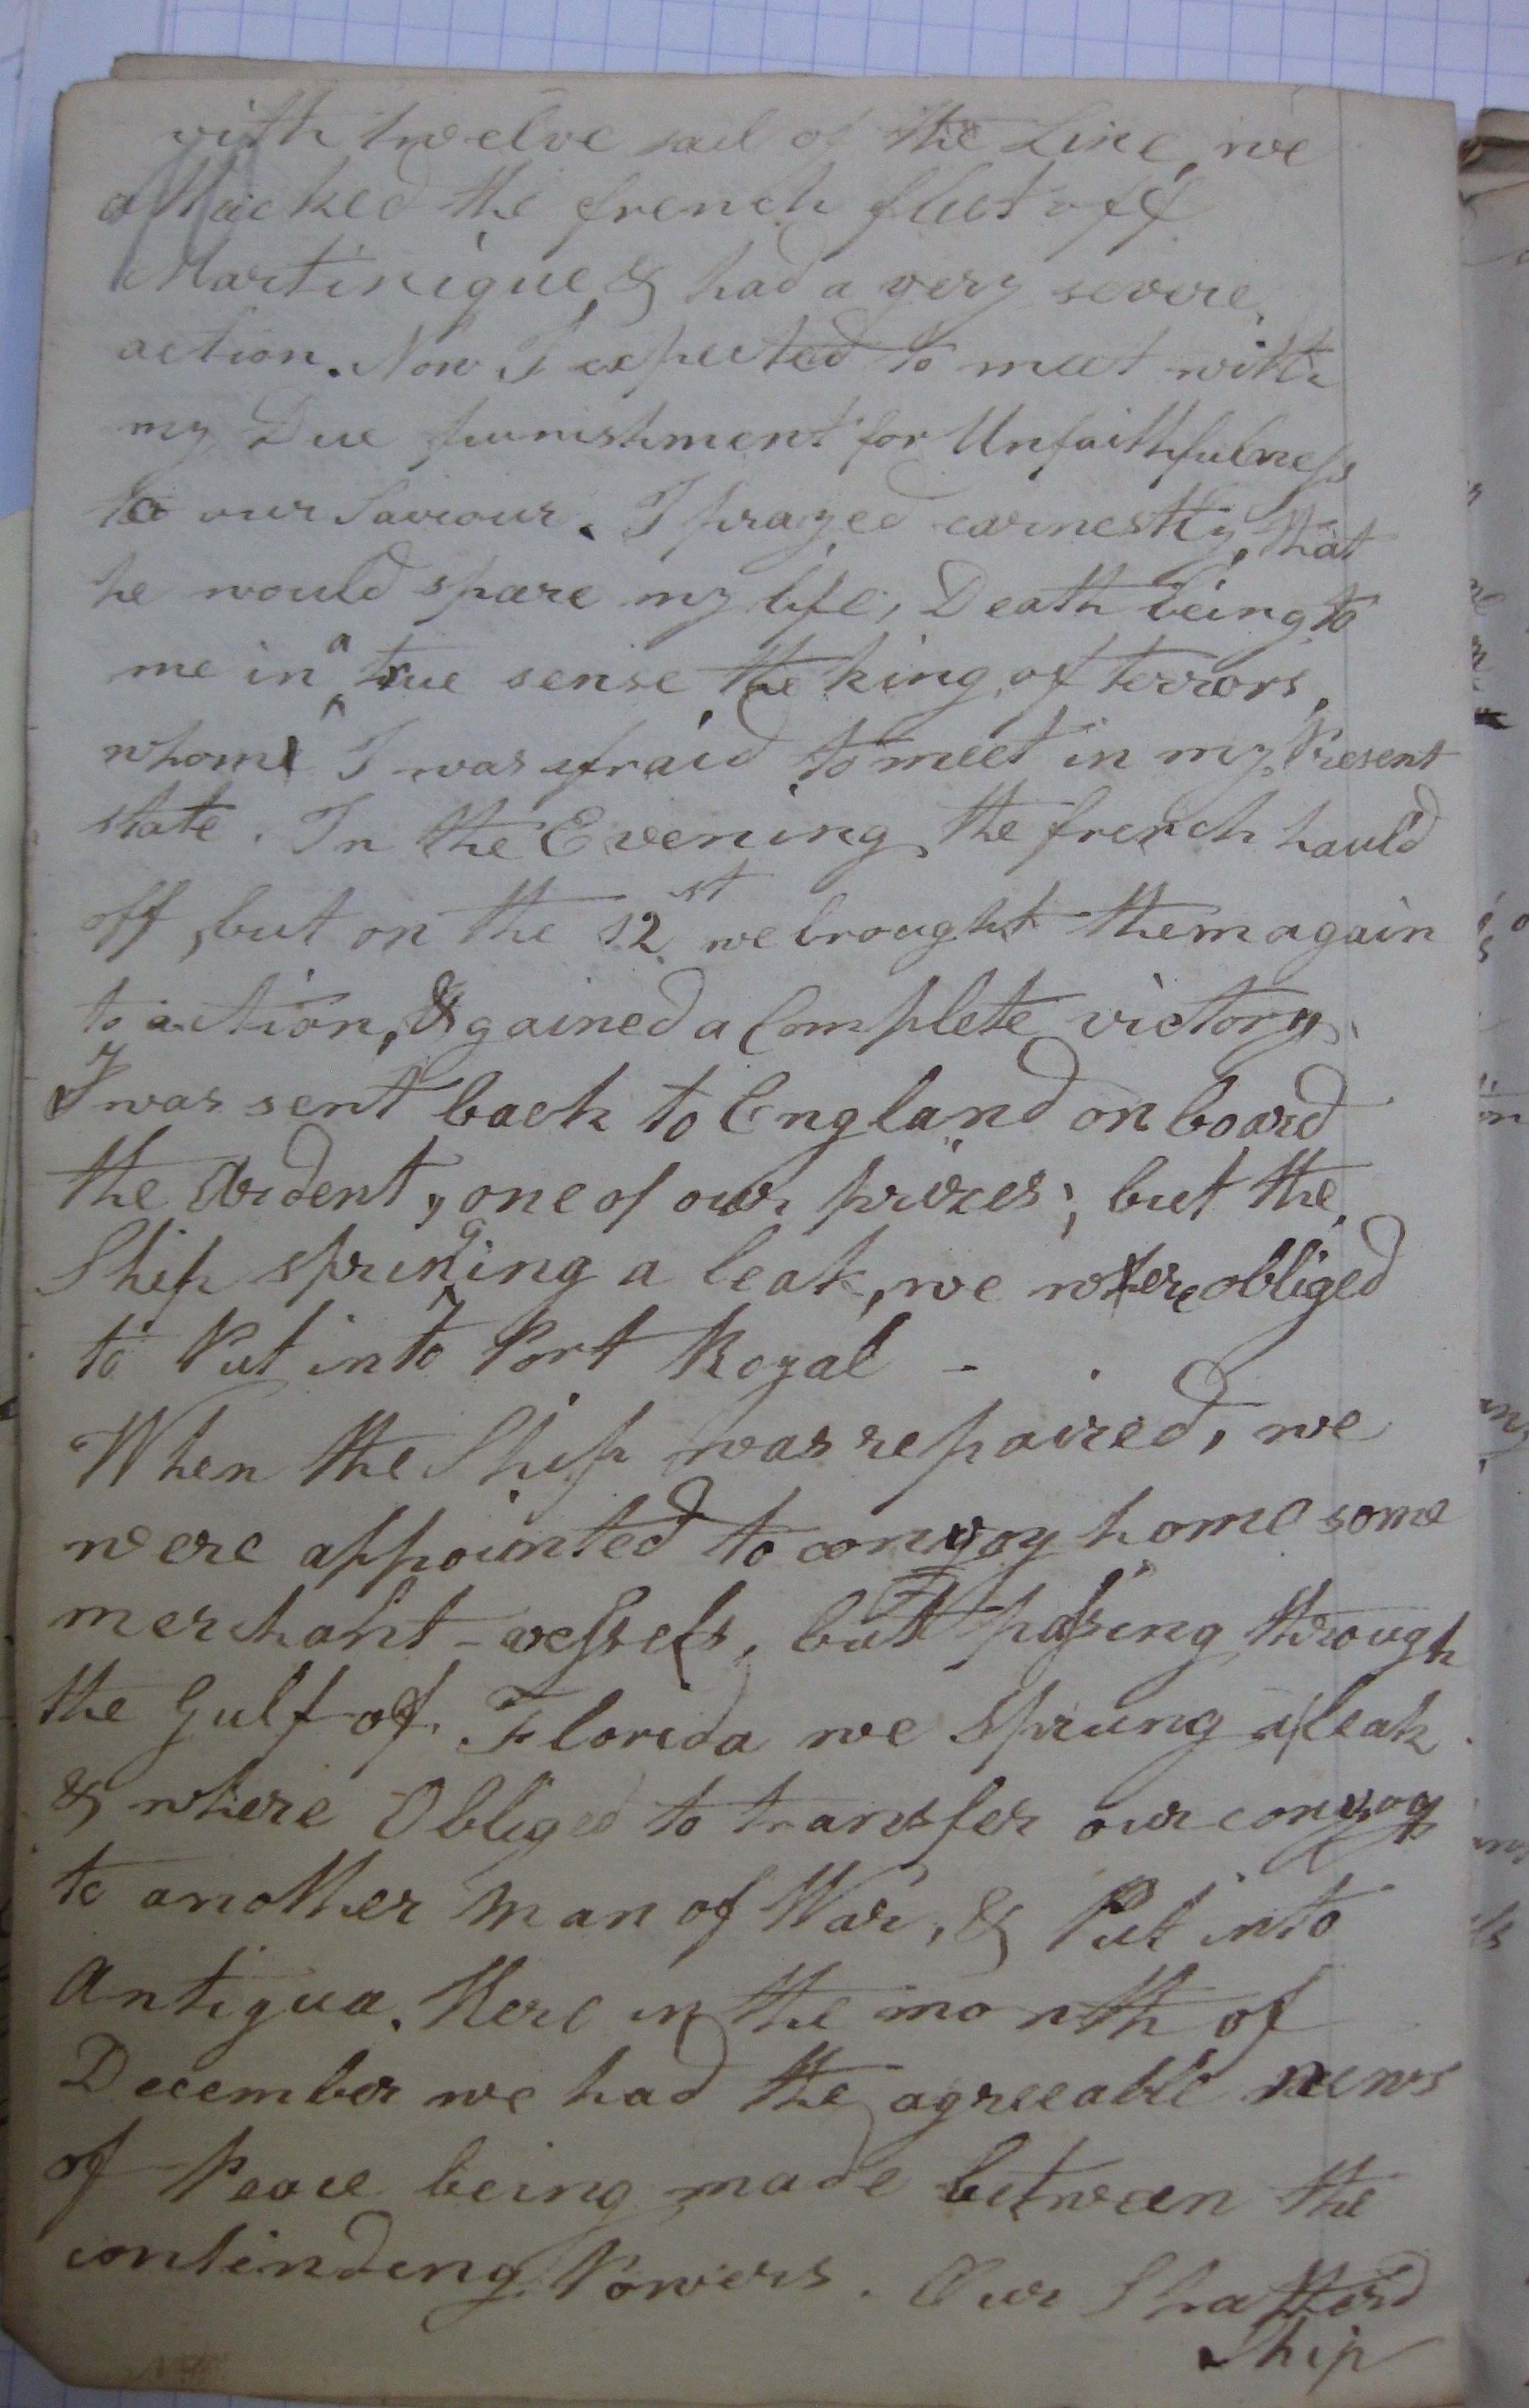 with twelve sail of the Line, we
attacked the french fleet off
Martinique, & had a very severe
action. Now I expected to meet with
my Due punishment for Unfaithfulness
to our Saviour. I prayed earnestly, that
he would spare my life, Death being to
me in a true sense the king of terrors,
whom I was afraid to meet in my Present
state. In the Evening the french haul'd
off, but on the 12st we brought them again
to action, & gained a Complete victory.
I was sent back to England on board
the Ardent, one of our prizes; but the
Ship springing a leak, we where obliged
to Put into Port Royal -
When the Ship was repaired, we
were appointed to convoy home some
merchant-vessels, but passing through
the Gulf of Florida we sprung a leak
& where Obliged to transfer our convoy
to another Man of War, & Put into
Antigua. Here in the month of
December we had the agreeable news
of Peace being made between the
contending Powers. Our Shatterd
Ship